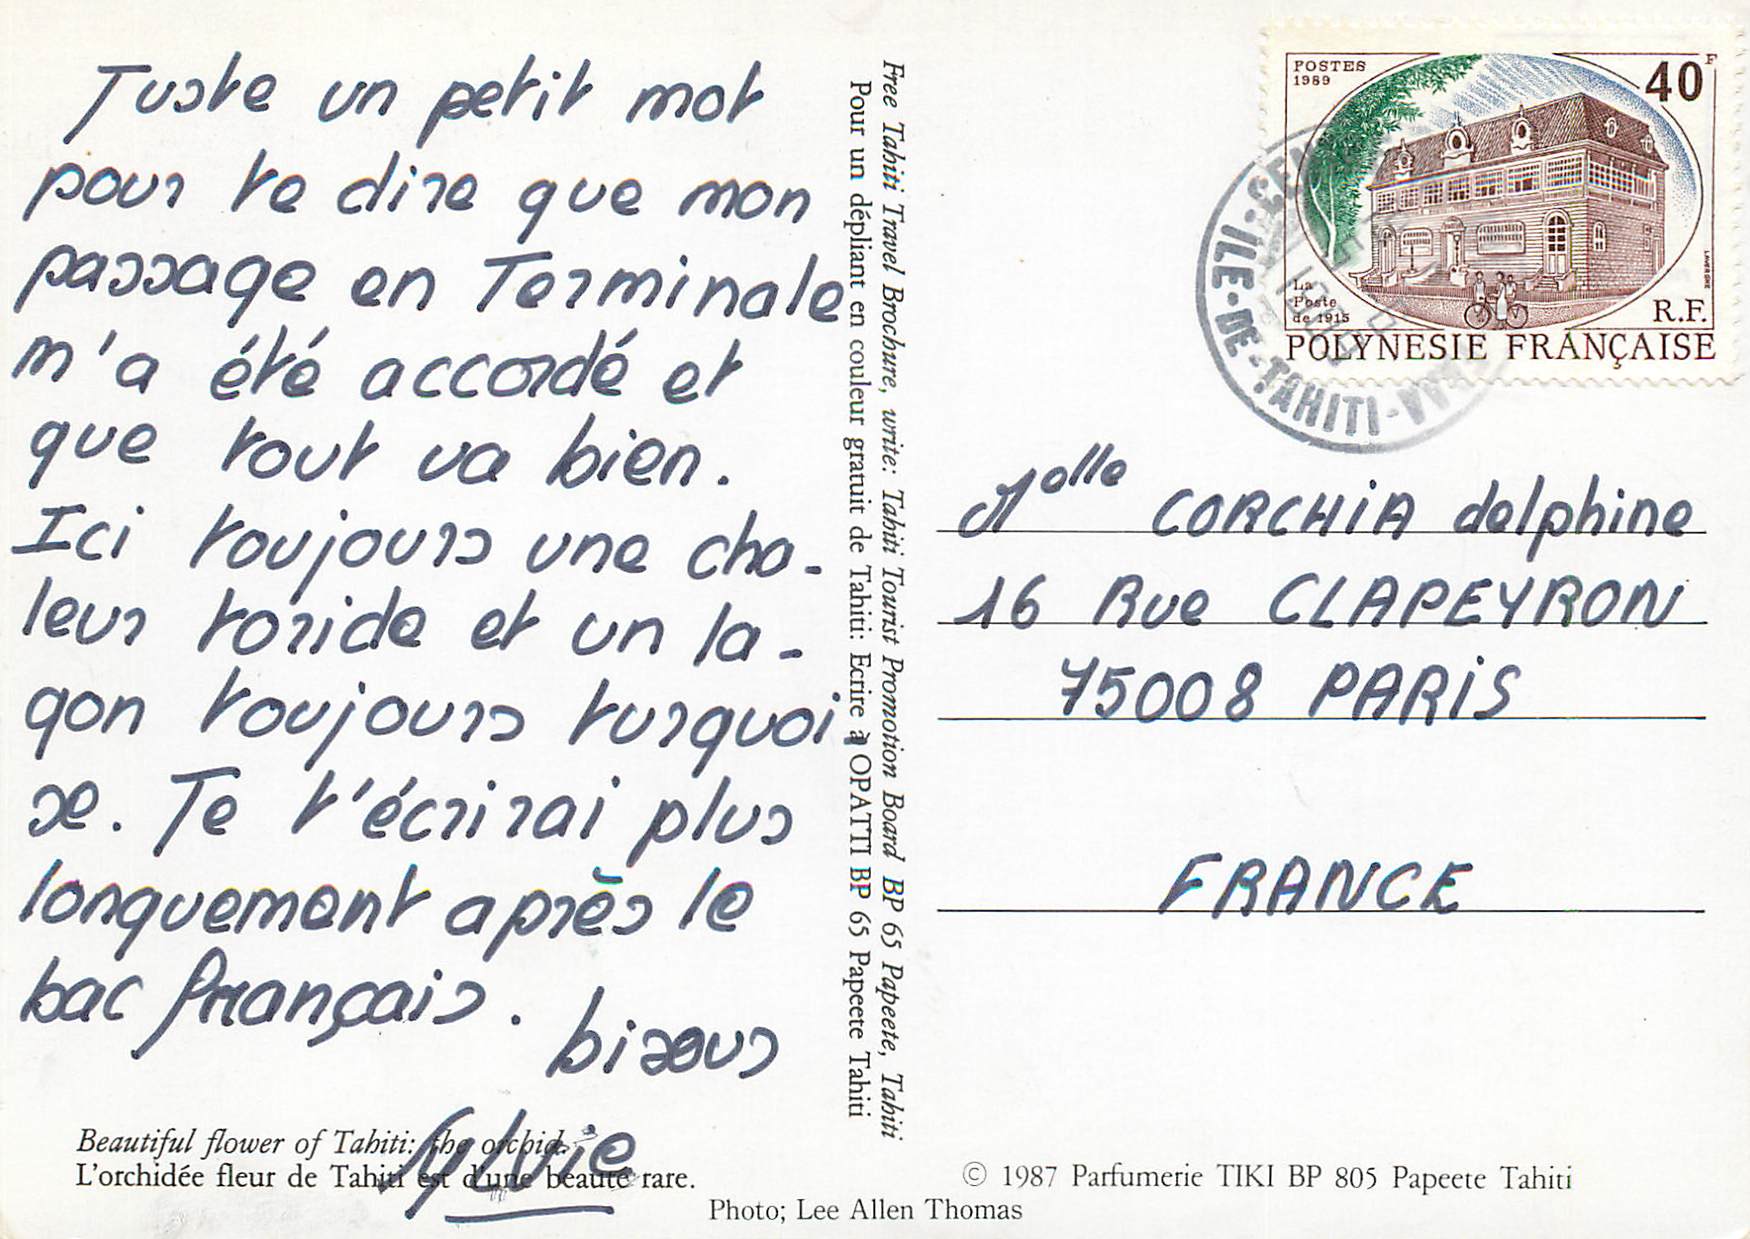 Juste un petit mot
pour te dire que mon
passage en Terminale
m'a été accordé et
que tout va bien.
Ici toujours une cha-
leur toride et un la-
gon toujours turquoi
se. Je t'écrirai plus
longuement après le
bac français.
bisous
Sylvie
Beautiful flower of Tahiti: the orchid.
L'orchidée fleur de Tahiti est d'une beauté rare.
Free Tahiti Travel Brochure, write: Tahiti Tourist Promotion Board BP 65 Papeete, Tahiti
Pour un dépliant en couleur gratuit de Tahiti: Ecrire à OPATTI BP 65 Papeete Tahiti
POSTES
1989
40F
La
Poste
de 1915
R.F.
POLYNESIE FRANÇAISE
ILE-DE-TAHITI
Melle CORCHIA delphine
16 Rue CLAPEYRON
75008 PARIS
FRANCE
© 1987 Parfumerie TIKI BP 805 Papeete Tahiti
Photo; Lee Allen Thomas